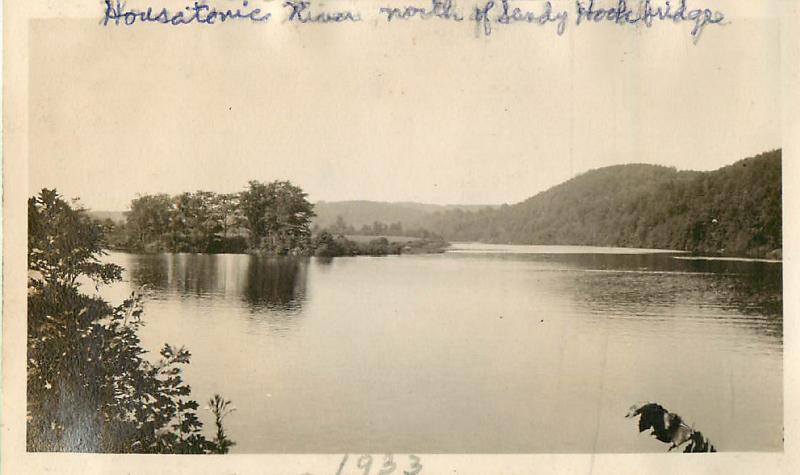 Housatonic River north of Sandy Hook bridge
1933